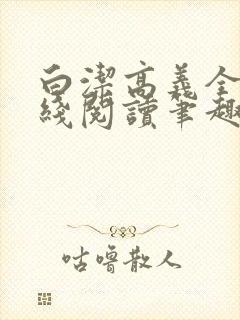 白潔高義全
綫閱讀筆趣
咕嚕散人